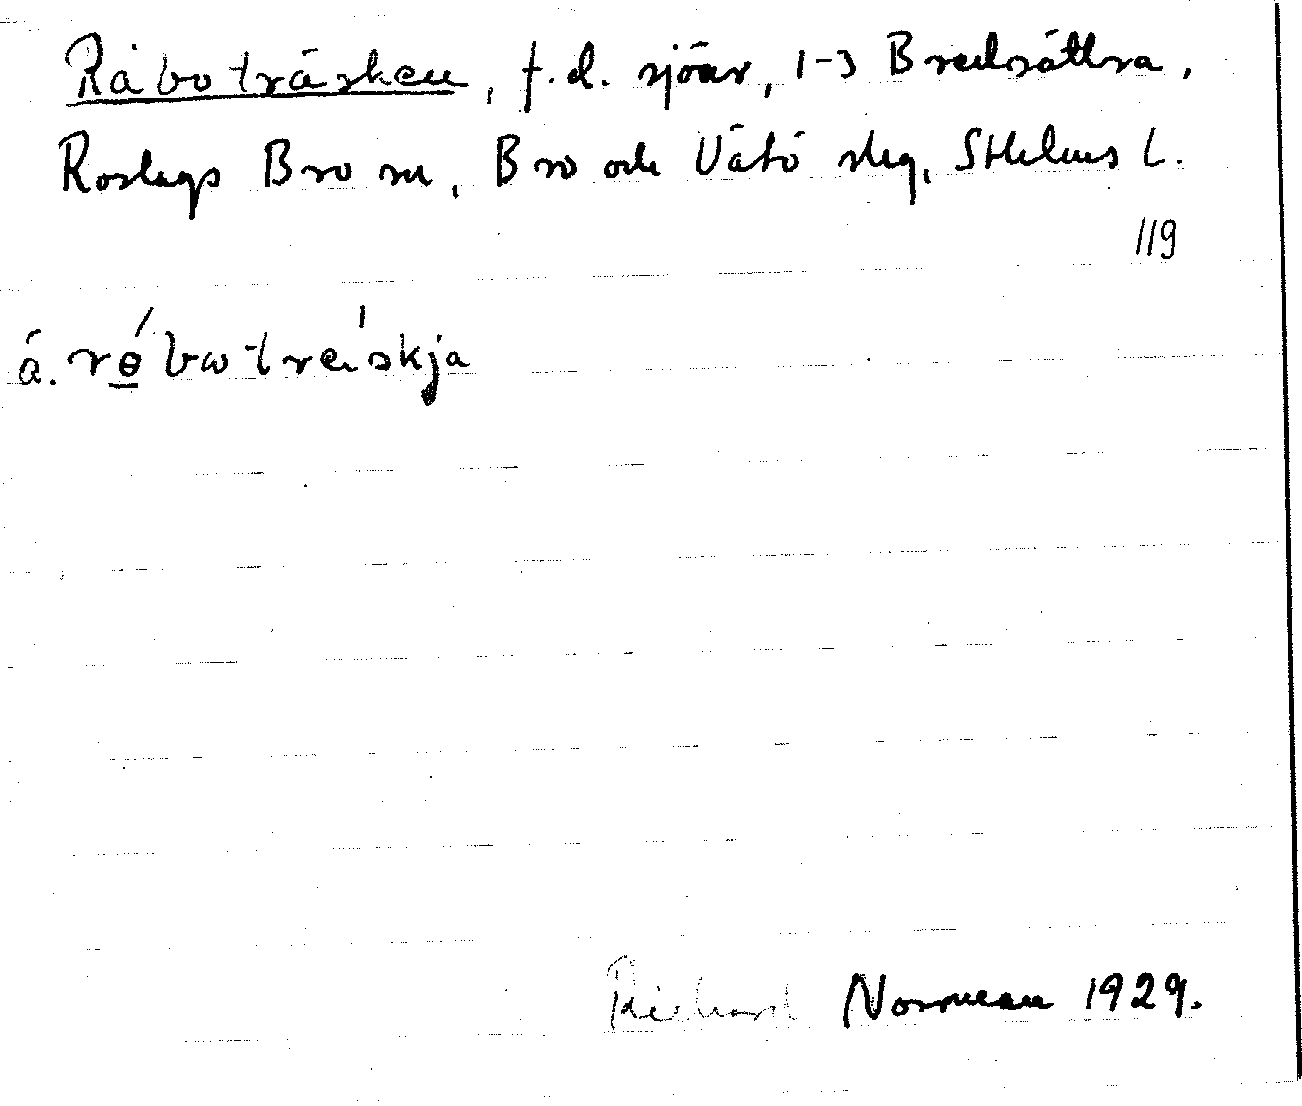 Råboträsken, f.d. sjöar, 1-3 Bredsättra,
Roslags Bro sn, Bro och Vätö skg, Sthlms l.
119
å. rɵ́bωtre̍skja
Richard Norrman 1929.